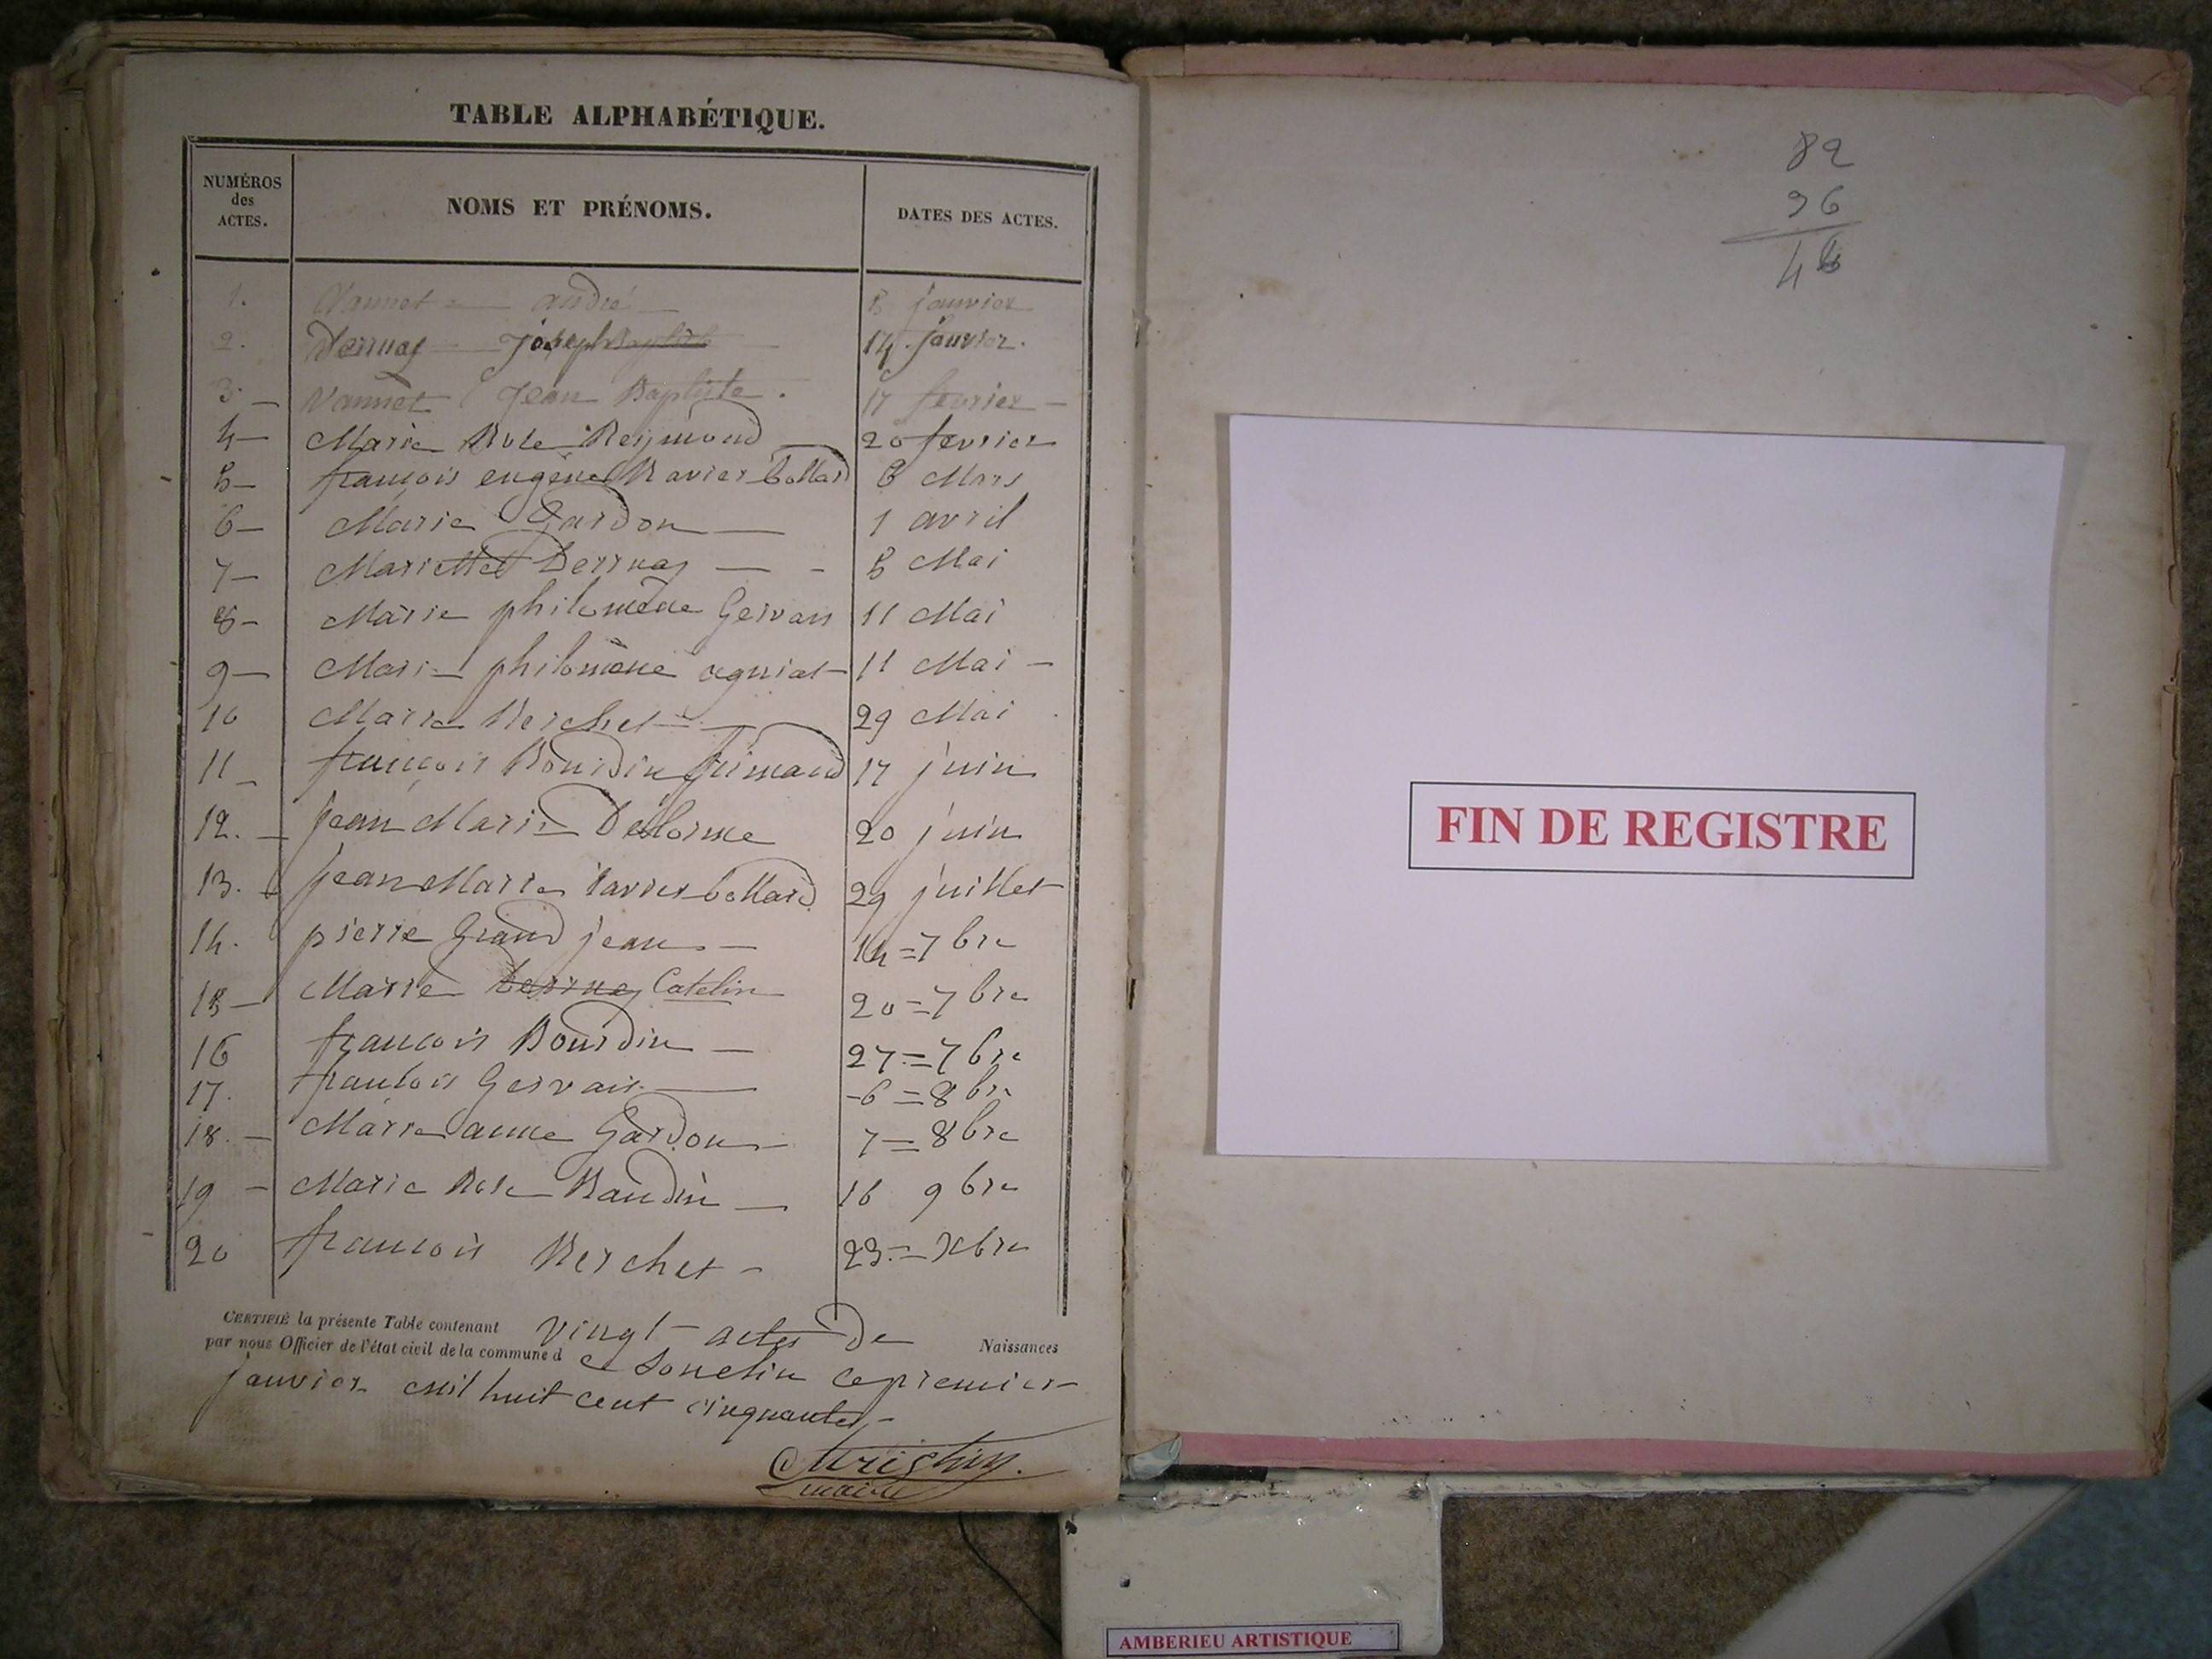 TABLE ALPHABÉTIQUE.
NUMÉROS des ACTES. NOMS ET PRÉNOMS. DATES DES ACTES.
1. Vannet andré 5 janvier
2. Derruaz Joseph Baptiste 14 janvier.
3. Vannet Jean Baptiste. 17 fevrier
4 Marie Rose Reymond 20 fevrier
5 françois eugéne Ravier bollard 8 Mars
6 Marie Gardon 1 avril
7 Mariette Derruaz 5 Mai
8 Marie philomene Gervais 11 Mai
9 Marie philomène agniat 11 Mai
10 Marie Berchet 29 Mai
11 françois Bourdin 17 juin
12. jean Marie Delorme 20 juin
13. jean Marie Ravier bollard 29 juillet
14. pierre Grand jean 14 = 7bre
15 Marie Derruaz Catelin 20 = 7bre
16 françois Bourdin 27 = 7bre
17. francois Gervais 6 = 8bre
18. Marie anne Gardon 7 = 8bre
19 Marie Rose Baudin 16 9bre
20 francois Berchet 23 = Xbre
CERTIFIÉ la présente Table contenant vingt actes de Naissances
par nous Officier de l'état civil de la commune d e Souclin ce premier
janvier mil huit cent cinquante
maire
82
96
44
FIN DE REGISTRE
AMBERIEU ARTISTIQUE